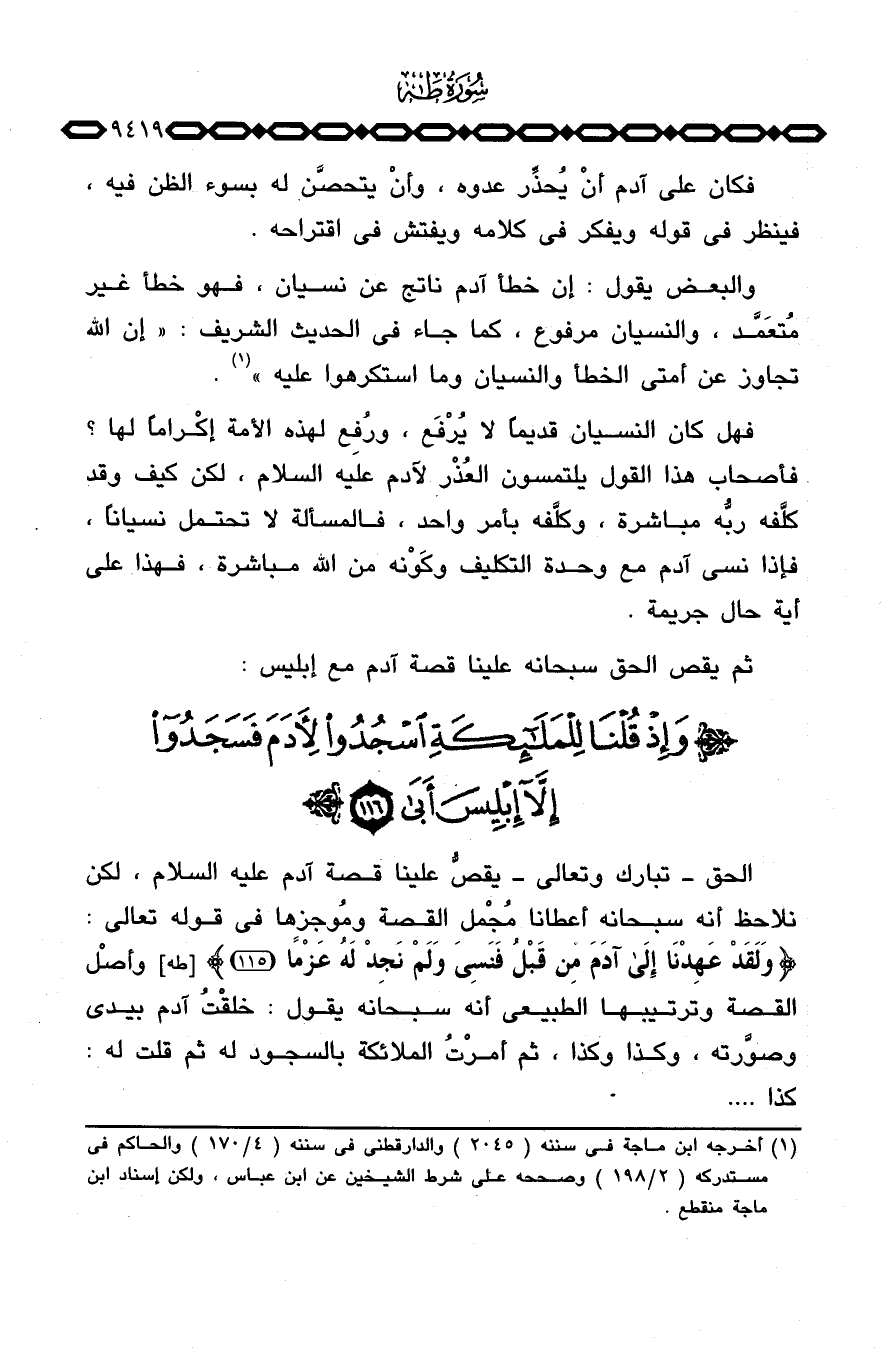 سُورَةُ طٰهٰ
٩٤١٩
فكان على آدم أنْ يُحذِّر عدوه ، وأنْ يتحصَّن له بسوء الظن فيه ،
فينظر فى قوله ويفكر فى كلامه ويفتش فى اقتراحه .
والبعض يقول : إن خطأ آدم ناتج عن نسيان ، فهو خطأ غير
مُتعَمَّد ، والنسيان مرفوع ، كما جاء فى الحديث الشريف : « إن الله
تجاوز عن أمتى الخطأ والنسيان وما استكرهوا عليه »(١) .
فهل كان النسيان قديماً لا يُرْفَع ، ورُفِع لهذه الأمة إكْراماً لها ؟
فأصحاب هذا القول يلتمسون العُذْر لآدم عليه السلام ، لكن كيف وقد
كلَّفه ربُّه مباشرة ، وكلَّفه بأمر واحد ، فالمسألة لا تحتمل نسياناً ،
فإذا نسى آدم مع وحدة التكليف وكَوْنه من الله مباشرة ، فهذا على
أية حال جريمة .
ثم يقص الحق سبحانه علينا قصة آدم مع إبليس :
﴿ وَإِذْ قُلْنَا لِلْمَلَٰٓئِكَةِ ٱسْجُدُوا۟ لِأَدَمَ فَسَجَدُوٓا۟
إِلَّآ إِبْلِيسَ أَبَىٰ ١١٦ ﴾
الحق - تبارك وتعالى - يقصُّ علينا قصة آدم عليه السلام ، لكن
نلاحظ أنه سبحانه أعطانا مُجْمل القصة ومُوجزها فى قوله تعالى :
﴿ وَلَقَدْ عَهِدْنَا إِلَىٰ آدَمَ مِن قَبْلُ فَنَسِىَ وَلَمْ نَجِدْ لَهُ عَزْمًا (١١٥) ﴾ [طه] وأصْل
القصة وترتيبها الطبيعى أنه سبحانه يقول : خلقْتُ آدم بيدى
وصوَّرته ، وكذا وكذا ، ثم أمرْتُ الملائكة بالسجود له ثم قلت له :
كذا ....
(١) أخرجه ابن ماجة فى سننه ( ٢٠٤٥ ) والدارقطنى فى سننه ( ١٧٠/٤ ) والحاكم فى
مستدركه ( ١٩٨/٢ ) وصححه على شرط الشيخين عن ابن عباس ، ولكن إسناد ابن
ماجة منقطع .